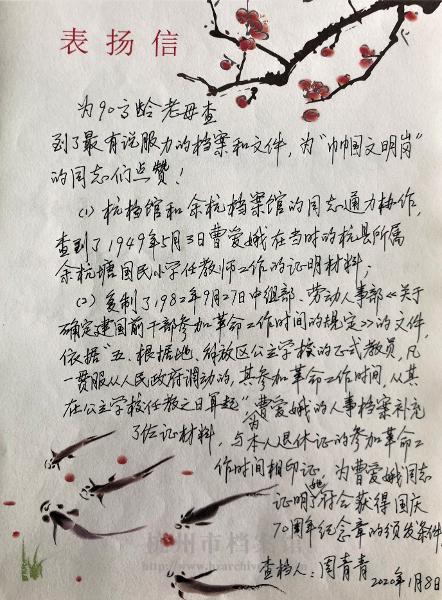 表扬信
为90高龄老母查
到了最有说服力的档案和文件，为“巾帼文明岗”
的同志们点赞！
(1) 杭档馆和余杭档案馆的同志通力协作，
查到了1949年5月3日曹爱娥在当时的杭县所属
余杭塘国民小学任教师工作的证明材料；
(2) 复制了1982年9月27日中组部、劳动人事部《关于
确定建国前干部参加革命工作时间的规定》的文件，
依据“五、根据地、解放区公立学校的正式教员，凡
一贯服从人民政府调动的，其参加革命工作时间，从其
在公立学校任教之日算起”为曹爱娥的人事档案补充
了佐证材料，与本人退休证的参加革命工
作时间相印证，为曹爱娥同志
证明她符合获得国庆
70周年纪念章的颁发条件。
查档人：周青青
2020年1月8日
杭州市档案